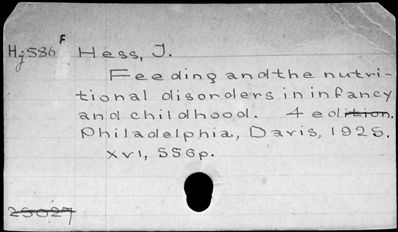 F
Hj586 Hess, J.
Feeding and the nutri-
tional disorders in infancy
and childhood. 4 edition.
Philadelphia, Davis, 1925.
xvi, 556p.
25027